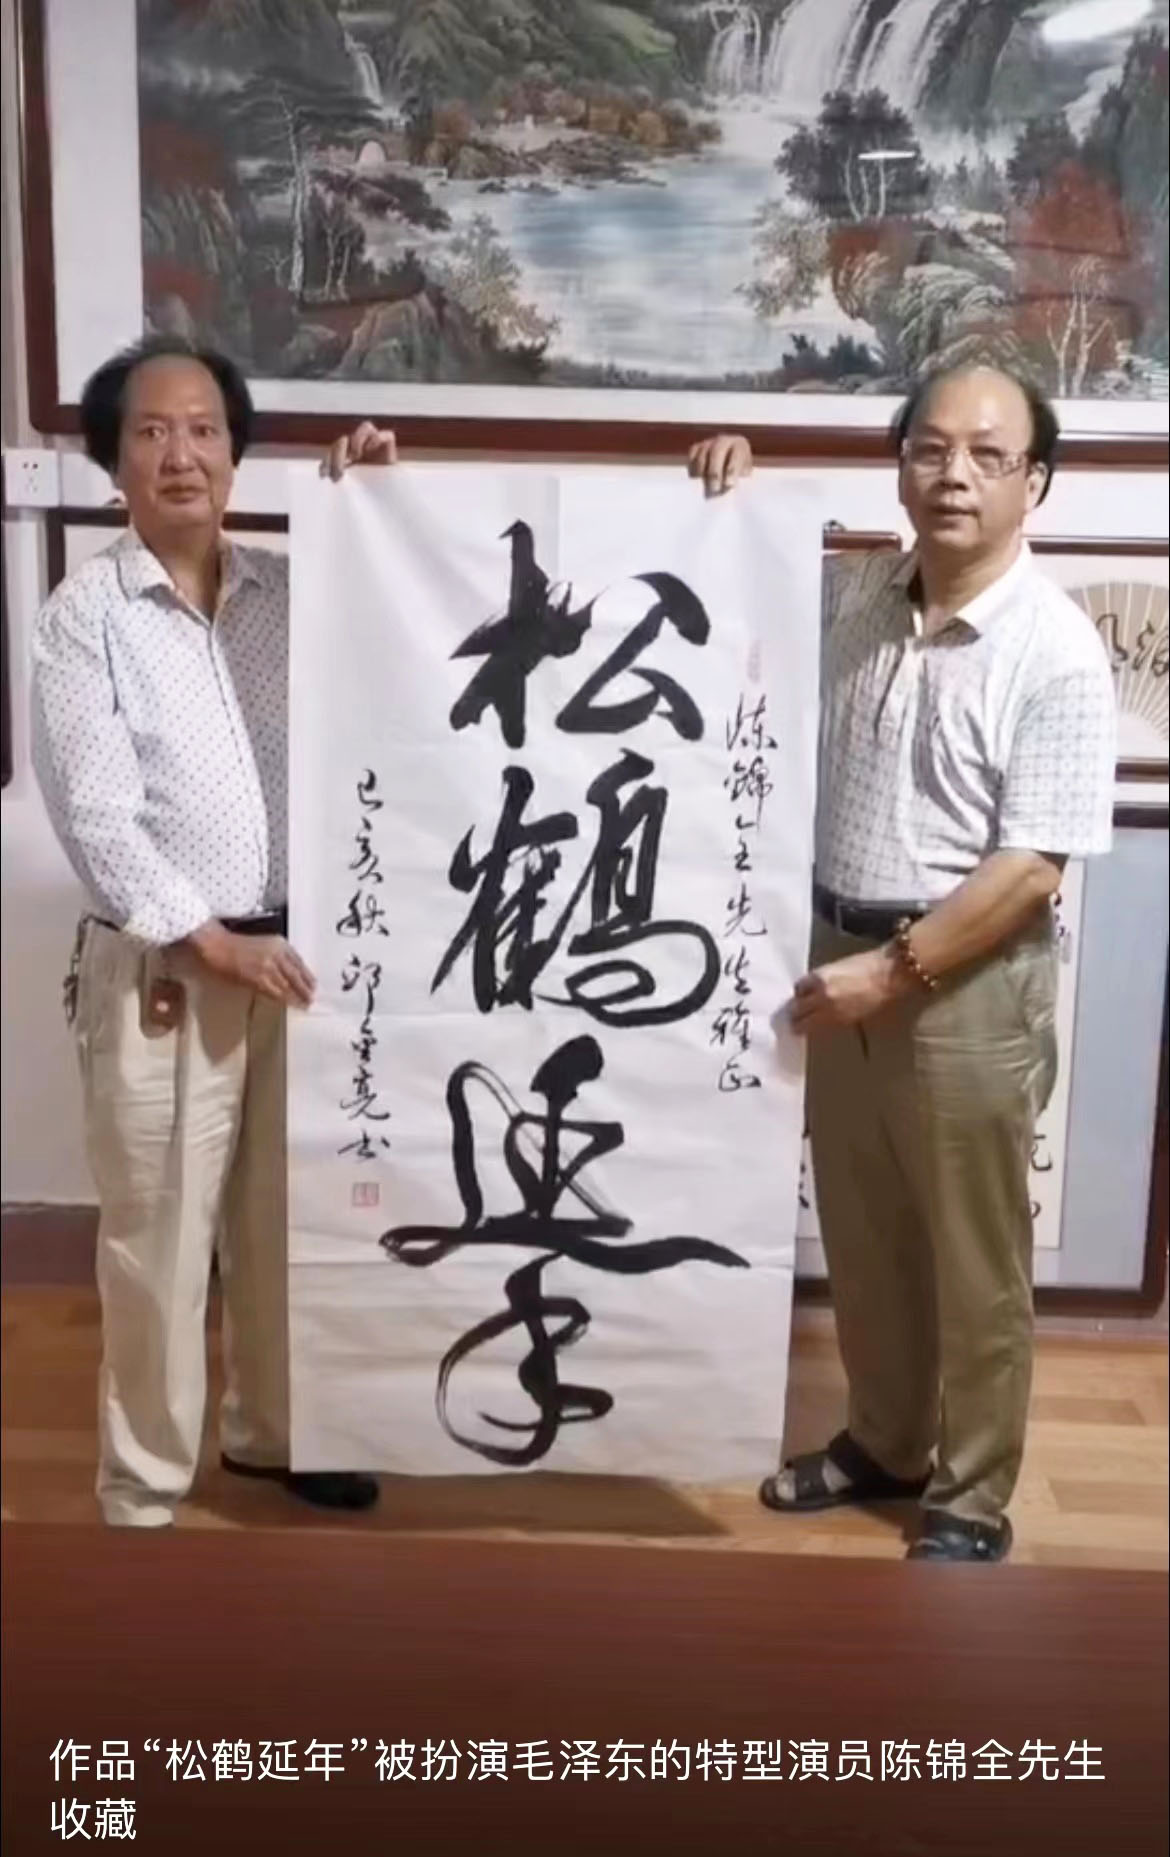 陈锦全先生雅正
松鶴延年
己亥秋邱亮书
作品“松鹤延年”被扮演毛泽东的特型演员陈锦全先生
收藏